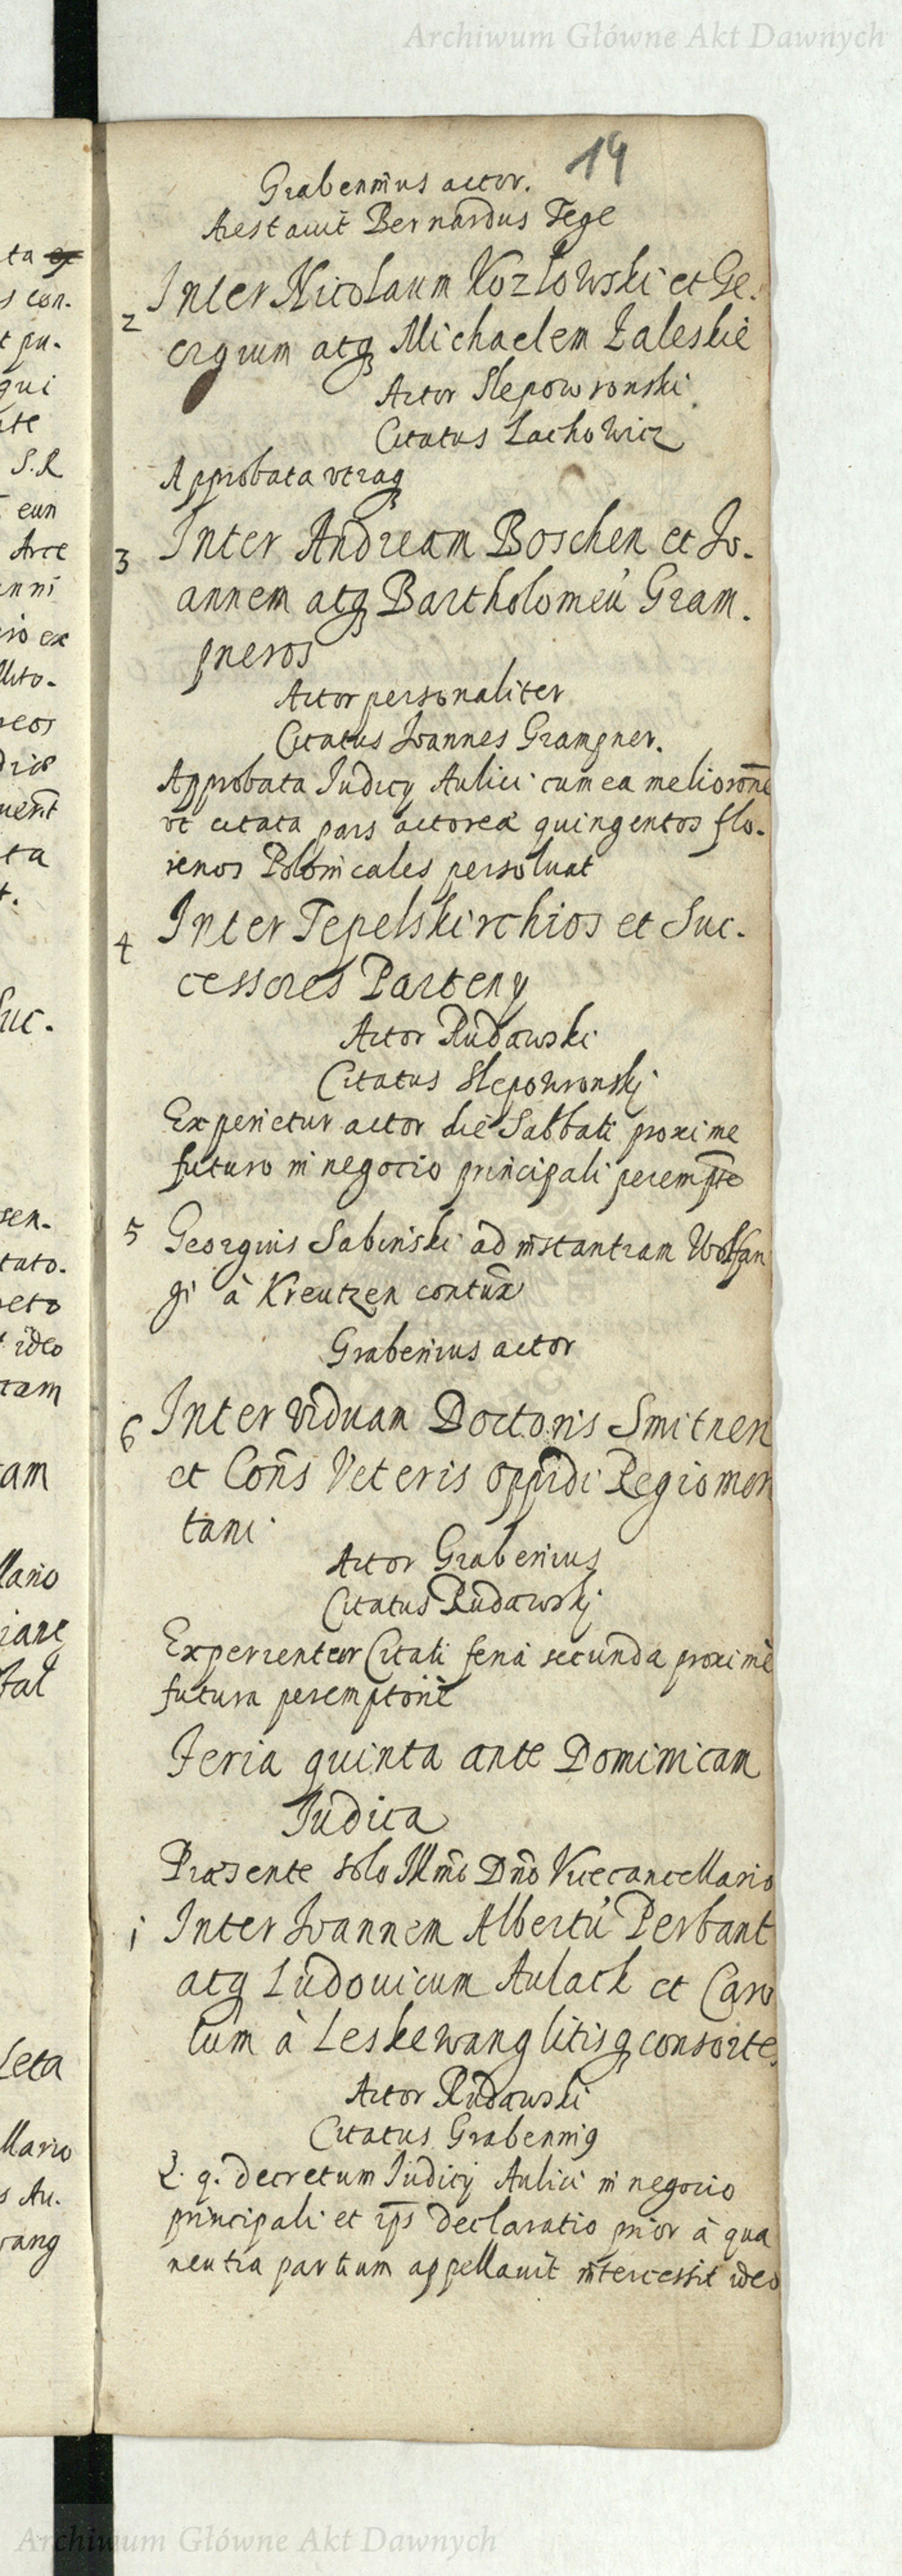 Archiwum Główne Akt Dawnych
14
Grabennius actor.
Aestauit Bernardus Tege
2 Inter Nicolaum Kozlowski et Ge.
orgium atq Michaelem Zaleskie
Actor Slepowronski
Citatus Lachowicz
Approbata vtraq
3 Inter Andream Boschen et Jo.
annem atq Bartholomeū Gram.
pneros
Actor personaliter
Citatus Joannes Grampner.
Approbata Judicy Aulici cum ea melioro͞ne
vt citata pars actorea quingentos flo.
renos Polonicales persoluat
4 Inter Tepelskirchios et Suc.
cessores Parteny
Actor Rudawski
Citatus Slepowronskj
Experietur actor die Sabbati proxime
futuro in negocio principali perempte
5 Georgius Sabinski ad instantiam Wolfan
gi à Kreutzen contūx
Grabenius actor
6 Inter viduam Doctoris Smitnen
et Coñs Veteris oppidi Regiomon
tani
Actor Grabenius
Citatus Rudawskj
Experientur Citati feria secunda proxime
futura peremptorie
Feria quinta ante Dominicam
Judica
Praesente solo Illmo Dño Vicecancellario
1 Inter Joannem Albertū Perbant
atq Ludouicum Aulack et Caro
lum à Leskewang litisq consorte
Actor Rudawski
Citatus Grabennig
q. decretum Judicij Aulici in negocio
principali et ips declaratio prior à qua
neutra partium appellauit intercessit ideo
ta
s con.
t pu.
qui
S.R
eun
Arce
ex
eos
ta
Suc.
sen.
tato.
ideo
tam
am
lario
tat
Leta
llario
s Au.
wang
Archiwum Główne Akt Dawnych